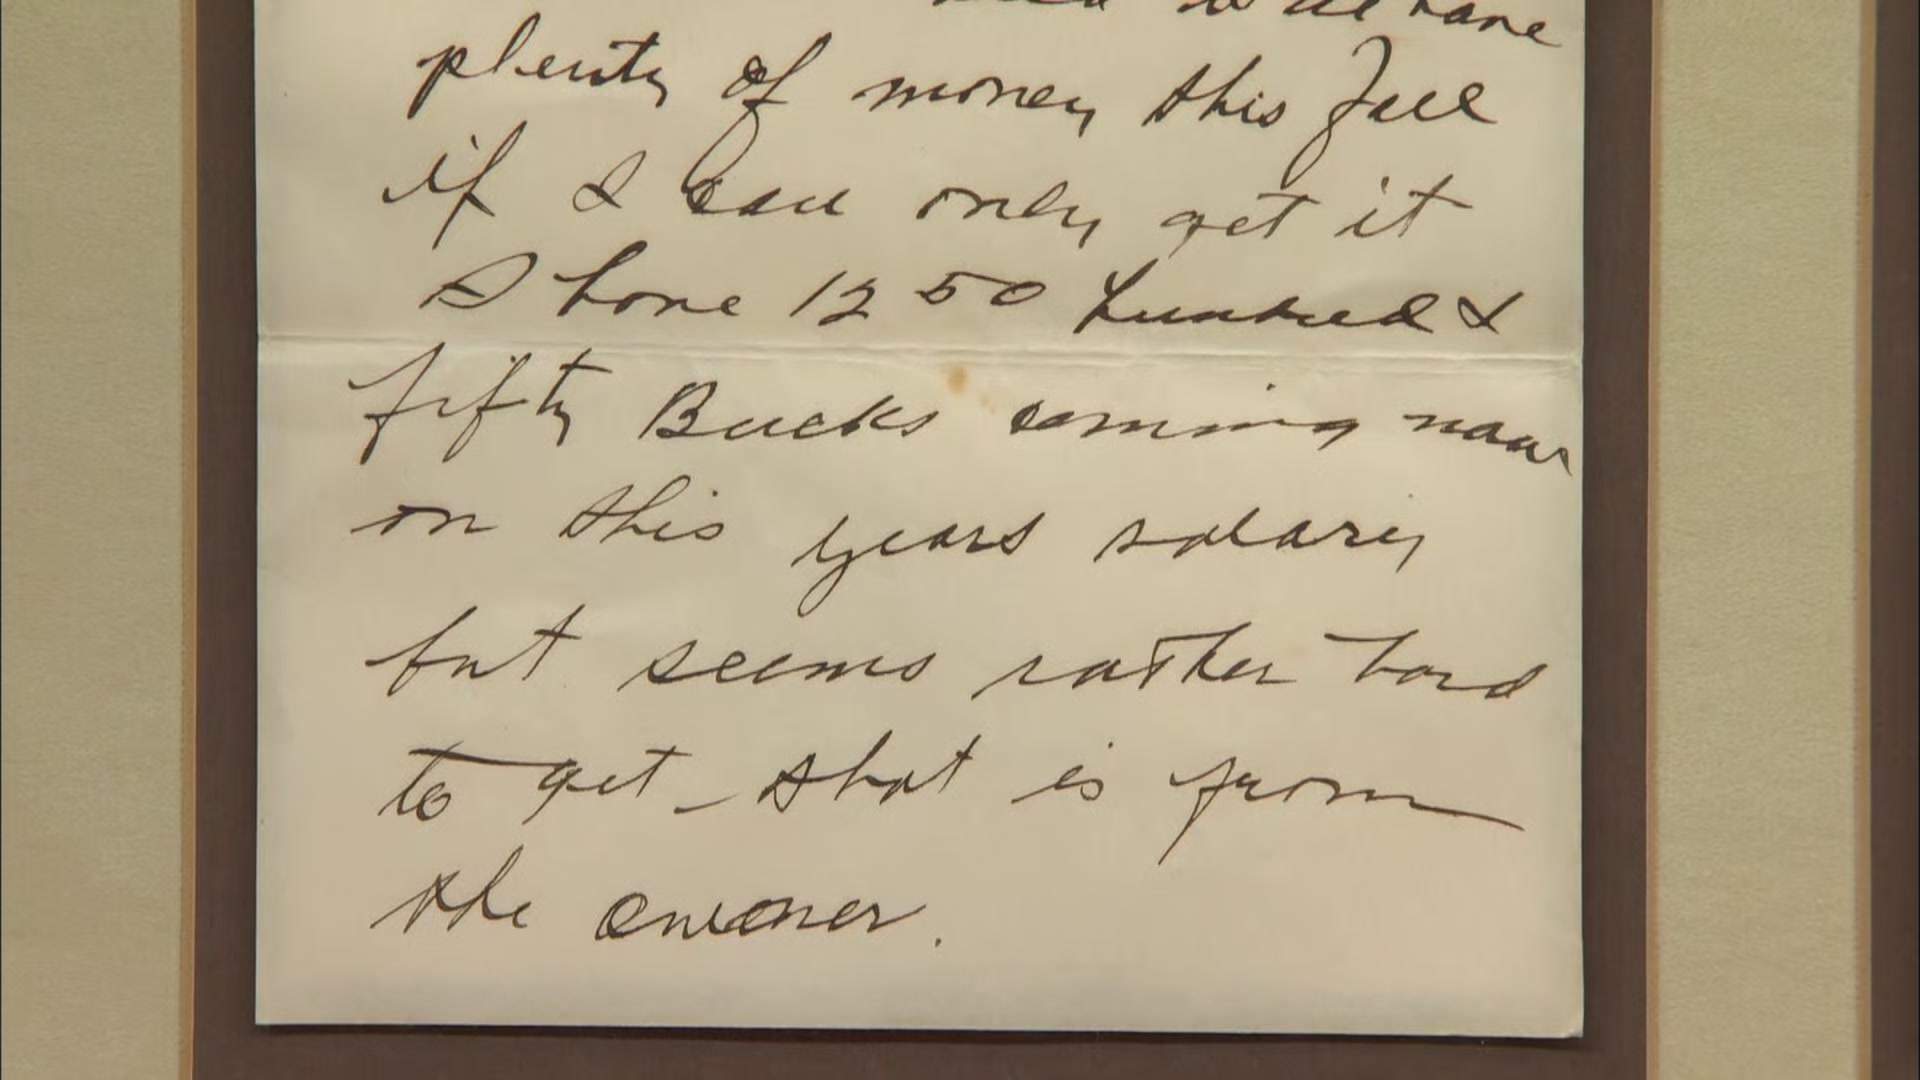 have
plenty of money this fall
if I can only get it
I have 12 50 hundred &
fifty Bucks coming now
on this years salary
but seems rather hard
to get - that is from
the owner.